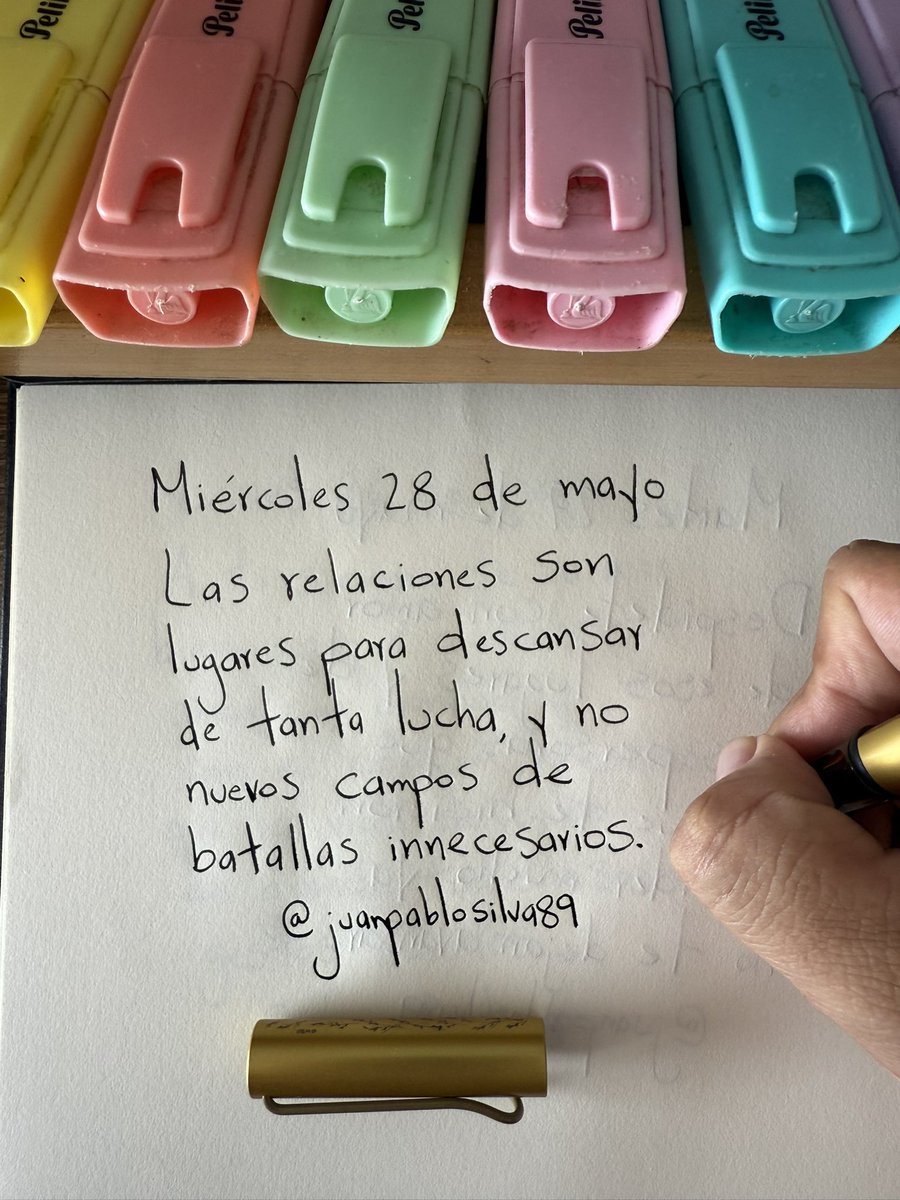 Peli
Peli
Peli
Peli
Peli
Miércoles 28 de mayo
Las relaciones son
lugares para descansar
de tanta lucha, y no
nuevos campos de
batallas innecesarios.
@juanpablosilva89